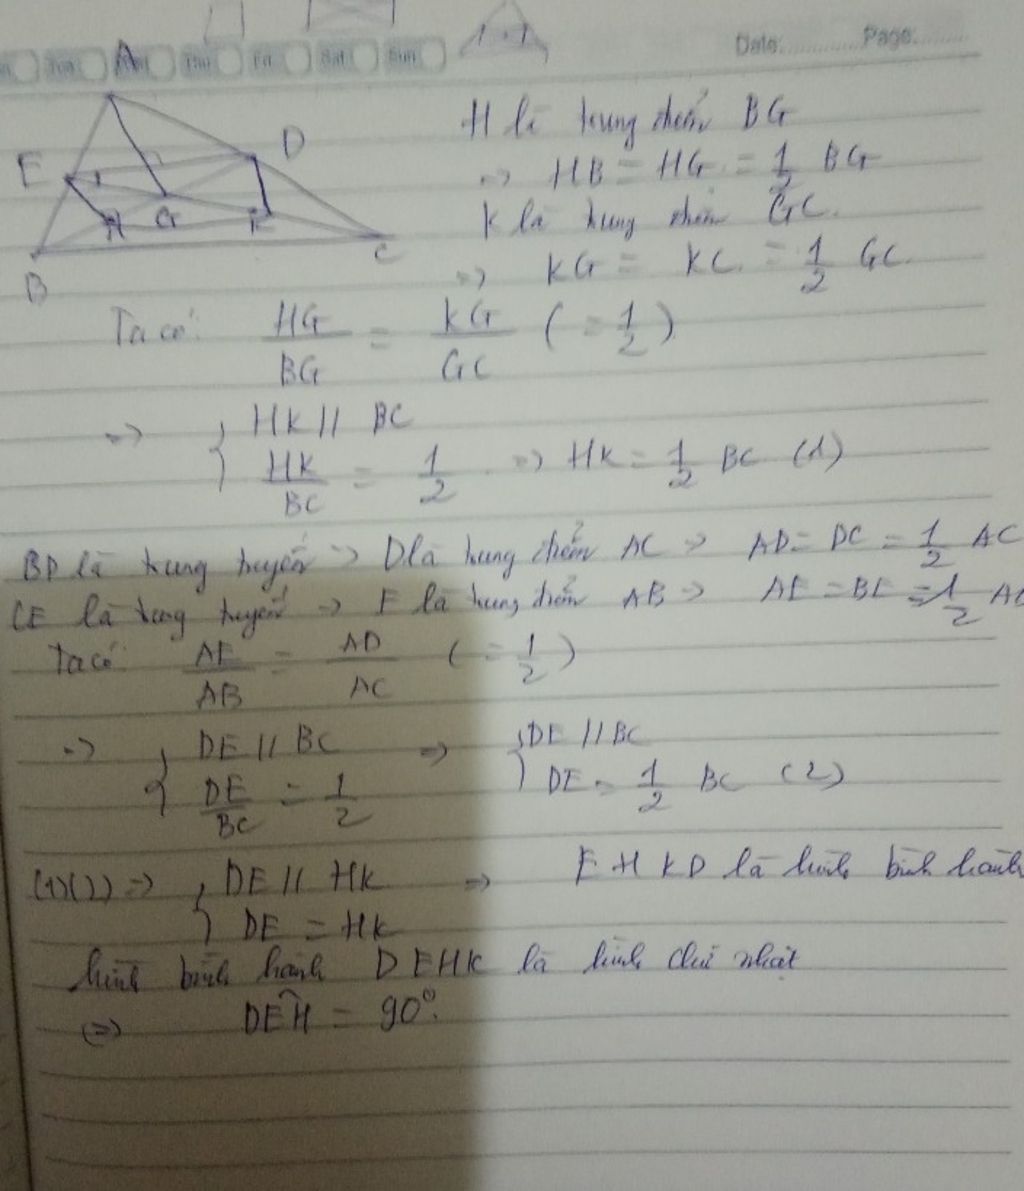 Tue Thu Fri Sat Sun
Date: Page:
A
E D
H G K
B C
H là trung điểm BG
=> HB = HG = 1/2 BG
K là trung điểm GC.
=> KG = KC = 1/2 GC.
Ta có: HG/BG = KG/GC (= 1/2)
=> { HK // BC
HK/BC = 1/2 => HK = 1/2 BC (1)
BD là trung tuyến => D là trung điểm AC => AD = DC = 1/2 AC
CE là trung tuyến -> E là trung điểm AB => AE = BE = 1/2
Ta có: AE/AB = AD/AC (= 1/2)
=> { DE // BC => { DE // BC
DE/BC = 1/2 DE = 1/2 BC (2)
(1)(2) => { DE // HK => EHKD là hình bình hành
DE = HK
hình bình hành DEHK là hình chữ nhật
(=) DÊH = 90°.